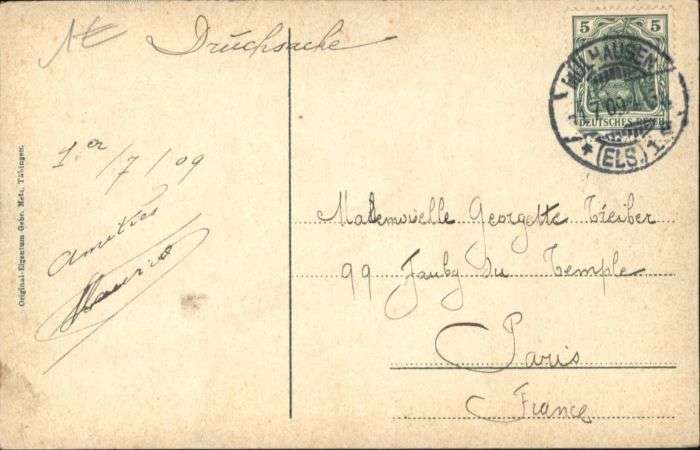 Drucksache
5 5
DEUTSCHES REICH
MÜLHAUSEN
1.7.09
* (ELS.) 1 d
1er/7/09
Amitiés
Maurice
Original-Eigentum Gebr. Metz, Tübingen.
Mademoiselle Georgette Treiber
99 Faubg du Temple
Paris
France